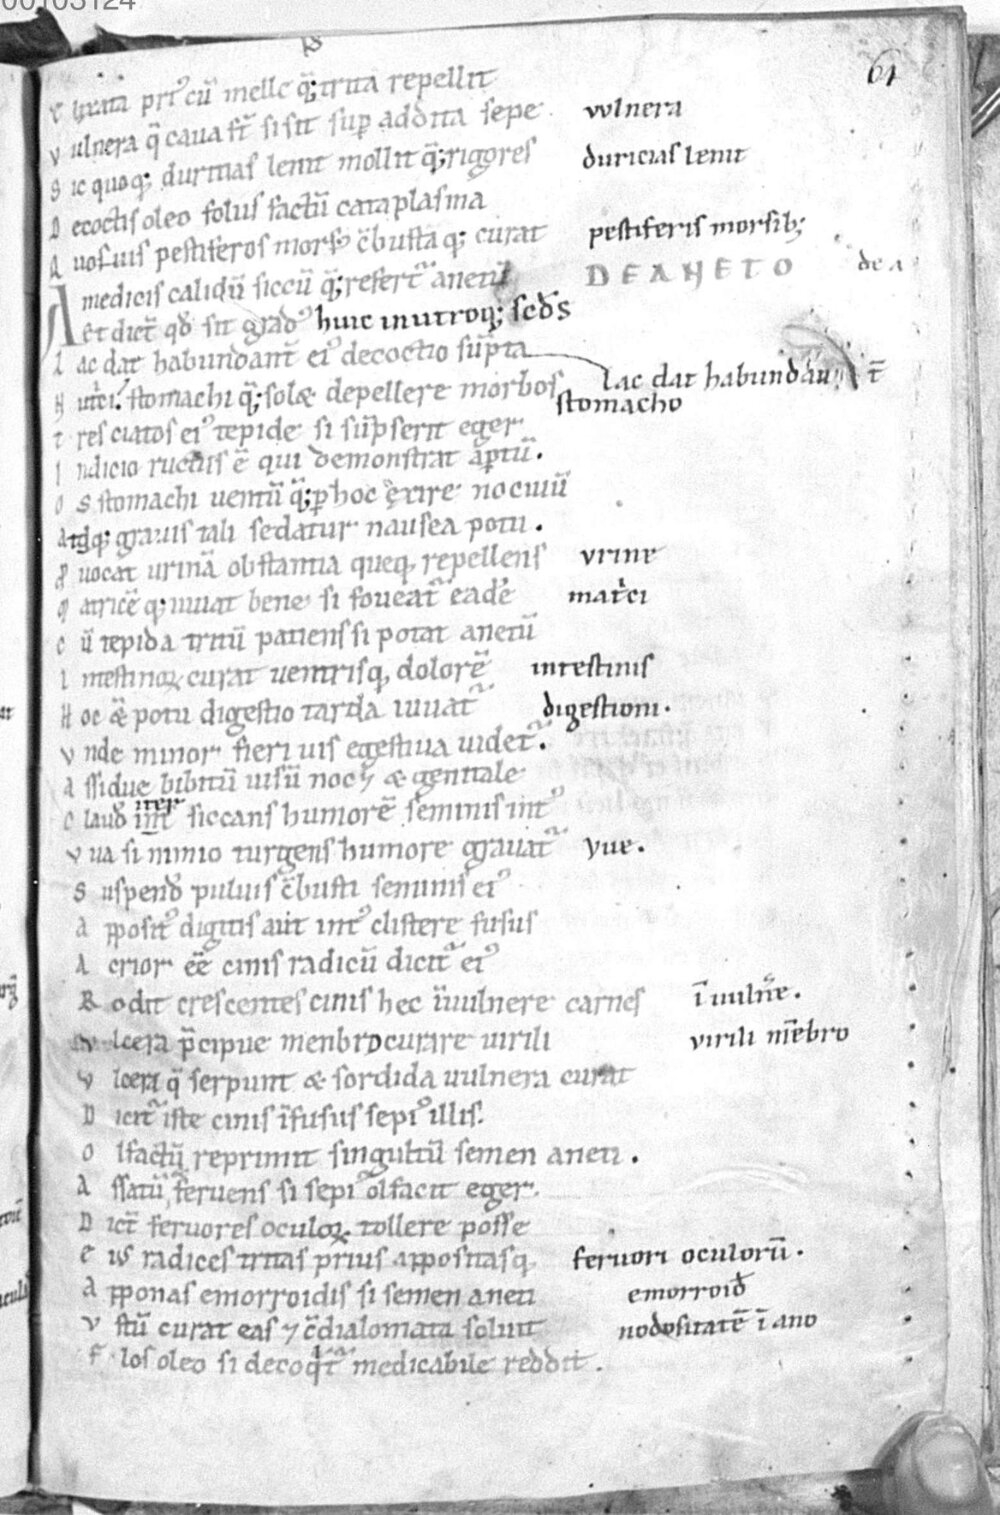 00103124
61
v lxata pri᾽ cū melle q̄; trita repellit
v ulnera q̄ caua st̄ si sit sup addita sepe vvlnera
S ic quoq; duritias lenit mollit q̄; rigores duricias lenit
D ecoctis oleo foliis factū cataplasma
A uos uis pestiferos mors᾽ c̄busta q; curat pestiferis morsib;
D E A N E T O de a
A medicis calidū siccū q̄; refert᷑ anetū
Et dict̄ qd̄ sit grad᾽ huic in utroq; scd̄s
L ac dat habundant̄ ei᾽ decoctio sūpta lac dat habundāt̄
H utri. stomachi q̄; solæ depellere morbos stomacho
t res ciatos ei᾽ tepide si sūpserit eger
I ndicio ructus ē qui demonstrat aptū.
O S stomachi uentū q̄; p hoc exire nociuū
Atq; grauis tali sedatur nausea potu.
P uocat urinā obstantia queq, repellens vrine
M atricē q; iuuat bene si foueat᷑ eadē matrici
C ū tepida tritū patiens si potat anetū
I ntestinoꝝ curat uentrisq, dolorē intestinis
H oc ǣ potu digestio tarda iuuat᷑ digestioni.
V nde minor fieri uis egestiua uidet᷑.
A ssidue bibitū uisū noc⁊ æ genitale
C laud̄ int̄ iter siccans humorē seminis int᾽
V ua si nimio turgens humore grauat᷑ yue.
S uspend᾽ puluis c̄busti seminis ei᾽
A pposit᾽ digitis aut int᾽ clistere fusus
A crior eē cinis radicū dicit᷑ ei᾽
R odit crescentes cinis hec ī uulnere carnes ī uulnēre.
V lcera p̄cipue menbro curare uirili virili mēbro
V lcera q̄ serpunt æ sordida uulnera curat
D icit᷑ iste cinis īfusus sepi᾽ illis.
O lfactū reprimit singultū semen aneti.
A ssatū feruens si sepi᾽ olfacit eger.
D ict̄ feruores oculoꝝ tollere posse
E ius radices tritas prius appositasq, feruori oculorū.
A pponas emorroidis si semen aneti emorroid̄
V stū curat eas ⁊ c̄dialomata soluit nodositatē ī ano
F los oleo si decoqt᷑ medicabile reddit.